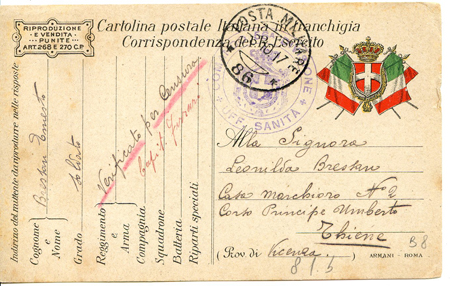 RIPRODUZIONE
E VENDITA
PUNITE
ART. 268 E 270 C.P.
Cartolina postale Italiana in franchigia
Corrispondenza del R. Esercito
POSTA MILITARE
86
UFF. SANITÀ
Indirizzo del mittente da riprodurre nelle risposte
Cognome e Nome
Brestan Ernesto
Grado
soldato
Reggimento e Arma
Compagnia
Squadrone
Batteria
Riparti speciali
Verificato per Censura
Alla Signora
Leonilda Brestan
Casa Marchioro Nº 2
Corso Principe Umberto
Thiene
(Prov. di Vicenza)
ARMANI - ROMA
B8